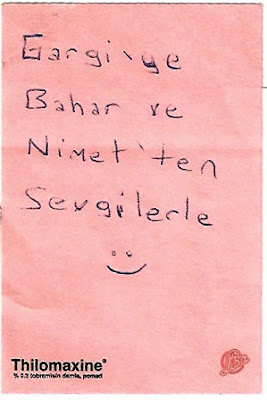 Gargi'ye
Bahar ve
Nimet'ten
Sevgilerle
Thilomaxine®
% 0.3 tobramisin damla, pomad